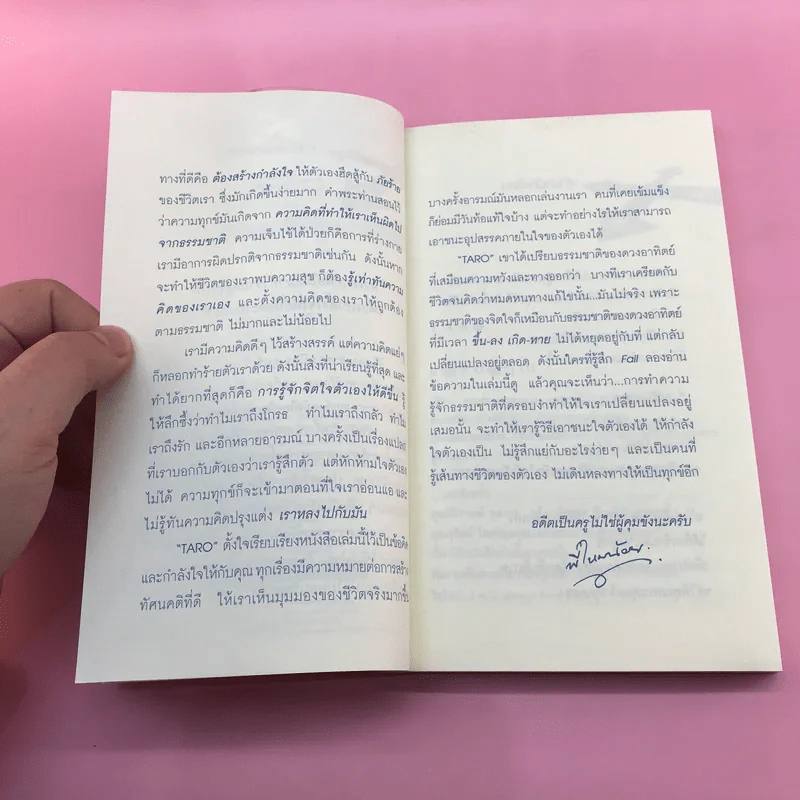 ทางที่ดีคือ ต้องสร้างกำลังใจ ให้ตัวเองฮึดสู้กับ ภัยร้าย
ของชีวิตเรา ซึ่งมักเกิดขึ้นง่ายมาก คำพระท่านสอนไว้
ว่าความทุกข์มันเกิดจาก ความคิดที่ทำให้เราเห็นผิดไป
จากธรรมชาติ ความเจ็บไข้ได้ป่วยก็คือการที่ร่างกาย
เรามีอาการผิดปรกติจากธรรมชาติเช่นกัน ดังนั้นหาก
จะทำให้ชีวิตของเราพบความสุข ก็ต้องรู้เท่าทันความ
คิดของเราเอง และตั้งความคิดของเราให้ถูกต้อง
ตามธรรมชาติ ไม่มากและไม่น้อยไป
เรามีความคิดดีๆ ไว้สร้างสรรค์ แต่ความคิดแย่ๆ
ก็หลอกทำร้ายตัวเราด้วย ดังนั้นสิ่งที่น่าเรียนรู้ที่สุด และ
ทำได้ยากที่สุดก็คือ การรู้จักจิตใจตัวเองให้ดีขึ้น รู้
ให้ลึกซึ้งว่าทำไมเราถึงโกรธ ทำไมเราถึงกลัว ทำไม
เราถึงรัก และอีกหลายอารมณ์ บางครั้งเป็นเรื่องแปลก
ที่เราบอกกับตัวเองว่าเรารู้สึกตัว แต่หักห้ามใจตัวเอง
ไม่ได้ ความทุกข์ก็จะเข้ามาตอนที่ใจเราอ่อนแอ และ
ไม่รู้ทันความคิดปรุงแต่ง เราหลงไปกับมัน
"TARO" ตั้งใจเรียบเรียงหนังสือเล่มนี้ไว้เป็นข้อคิด
และกำลังใจให้กับคุณ ทุกเรื่องมีความหมายต่อการสร้าง
ทัศนคติที่ดี ให้เราเห็นมุมมองของชีวิตจริงมากขึ้น
บางครั้งอารมณ์มันหลอกเล่นงานเรา คนที่เคยเข้มแข็ง
ก็ย่อมมีวันท้อแท้ใจบ้าง แต่จะทำอย่างไรให้เราสามารถ
เอาชนะอุปสรรคภายในใจของตัวเองได้
"TARO" เขาได้เปรียบธรรมชาติของดวงอาทิตย์
ที่เสมือนความหวังและทางออกว่า บางทีเราเครียดกับ
ชีวิตจนคิดว่าหมดหนทางแก้ไขนั้น...มันไม่จริง เพราะ
ธรรมชาติของจิตใจก็เหมือนกับธรรมชาติของดวงอาทิตย์
ที่มีเวลา ขึ้น-ลง เกิด-หาย ไม่ได้หยุดอยู่กับที่ แต่กลับ
เปลี่ยนแปลงอยู่ตลอด ดังนั้นใครที่รู้สึก Fail ลองอ่าน
ข้อความในเล่มนี้ดู แล้วคุณจะเห็นว่า...การทำความ
รู้จักธรรมชาติที่ครอบงำทำให้ใจเราเปลี่ยนแปลงอยู่
เสมอนั้น จะทำให้เรารู้วิธีเอาชนะใจตัวเองได้ ให้กำลัง
ใจตัวเองเป็น ไม่รู้สึกแย่กับอะไรง่ายๆ และเป็นคนที่
รู้เส้นทางชีวิตของตัวเอง ไม่เดินหลงทางให้เป็นทุกข์อีก
อดีตเป็นครูไม่ใช่ผู้คุมขังนะครับ